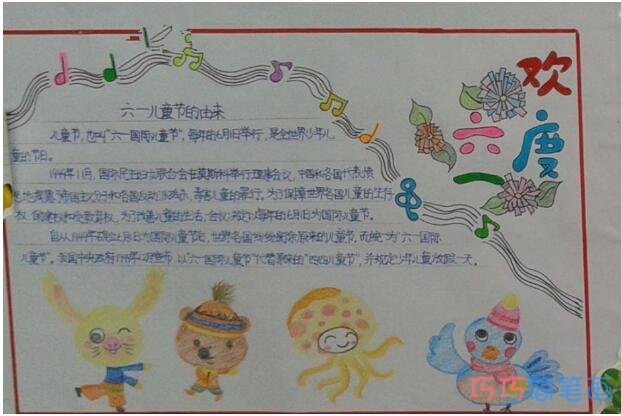 欢度
六一
六一儿童节的由来
儿童节,也叫"六一国际儿童节",每年的6月1日举行,是全世界少年儿
童的节日。
1949年11月,国际民主妇女联合会在莫斯科举行理事会议,中国和各国代表
国主义分子和各国反动派残杀、毒害儿童的罪行。为了保障世界各国儿童的生存
权、保健权和受教育权,为了改善儿童的生活,会议决定以每年的6月1日为国际儿童节。
自从1949年确立6月1日为国际儿童节后,世界各国纷纷废除原来的儿童节,而统一为"六一国际
儿童节"。我国中央政府1949年12月宣布,以"六一国际儿童节"代替原来的"四四儿童节",并规定少年儿童放假一天。
巧巧简笔画